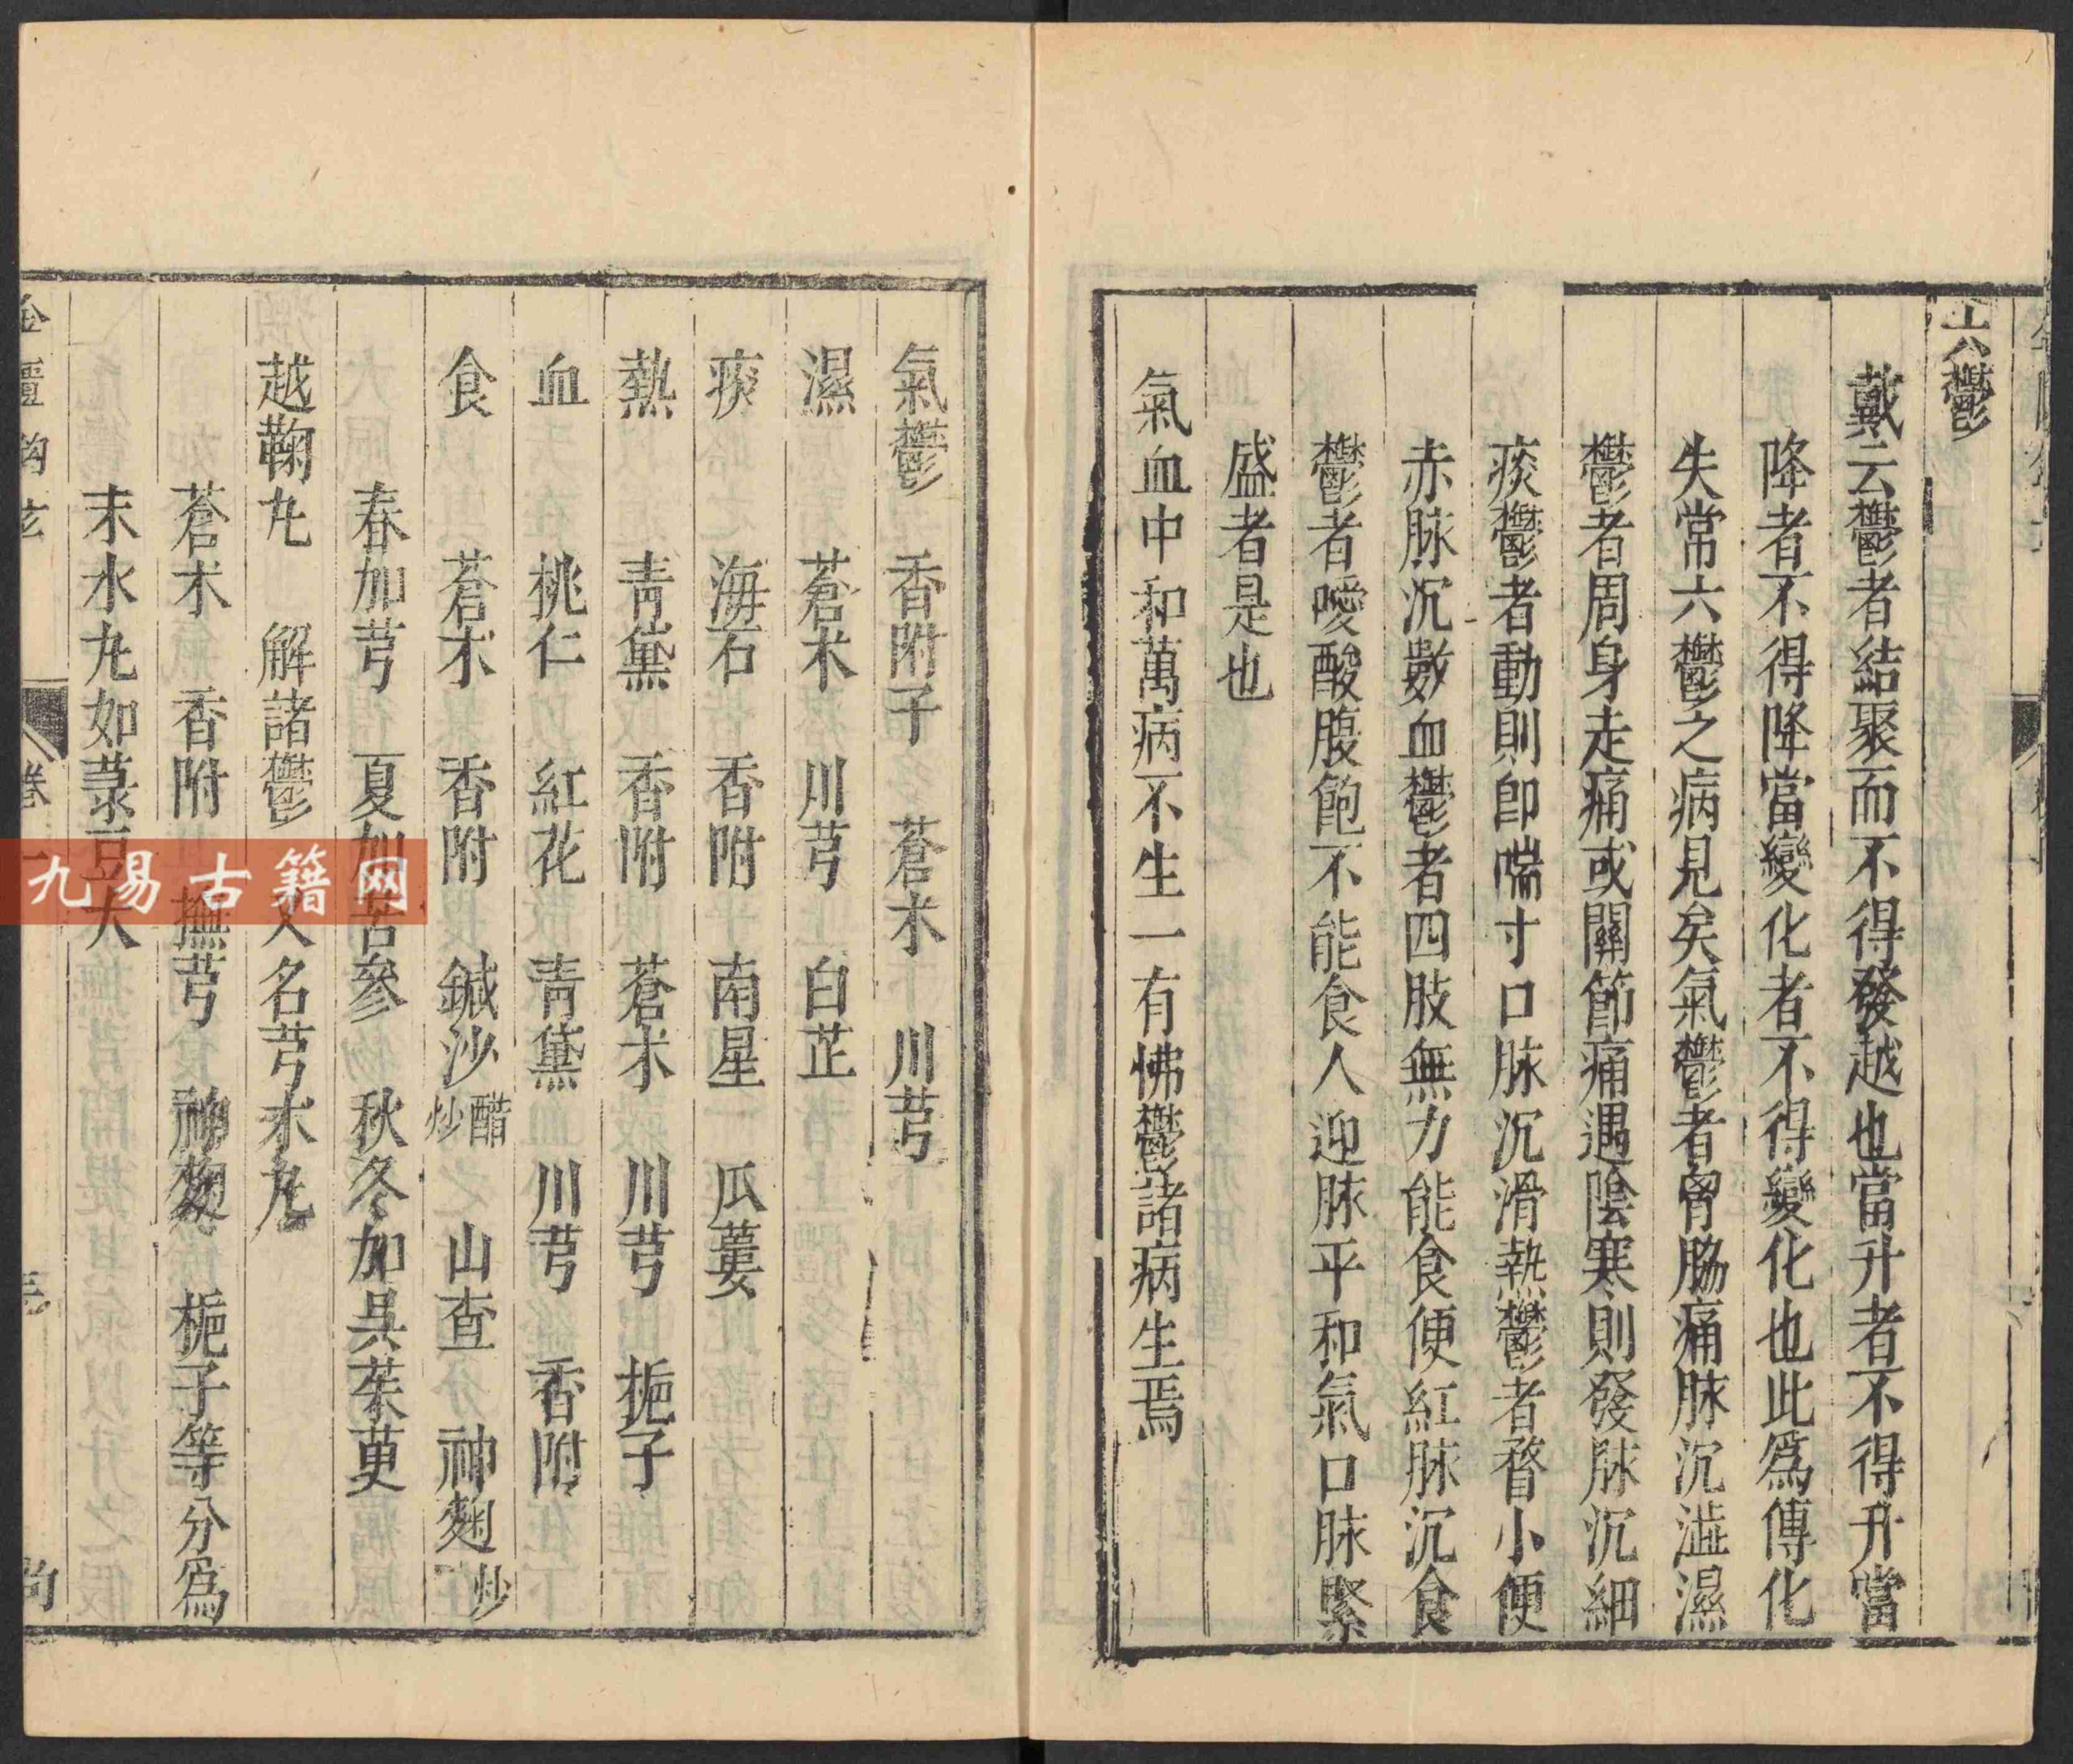 六鬱
戴云鬱者結聚而不得發越也當升者不得升當
降者不得降當變化者不得變化也此爲傳化
失常六鬱之病見矣氣鬱者胷脇痛脉沉澁濕
鬱者周身走痛或關節痛遇隂寒則發脉沉細
痰鬱者動則卽喘寸口脉沉滑熱鬱者瞀小便
赤脉沉數血鬱者四肢無力能食便紅脉沉食
鬱者噯酸腹飽不能食人迎脉平和氣口脉緊
盛者是也
氣血中和萬病不生一有怫鬱諸病生焉
氣鬱 香附子 蒼术 川芎
濕 蒼术 川芎 白芷
痰 海石 香附 南星 瓜蔞
熱 靑黛 香附 蒼术 川芎 梔子
血 桃仁 紅花 靑黛 川芎 香附
食 蒼术 香附 鍼沙醋炒 山查 神麴炒
春加芎 夏加苦參 秋冬加吳茱萸
越鞠丸 解諸鬱 又名芎术丸
蒼术 香附 撫芎 神麴 梔子等分爲
末水丸如菉豆大
卷一
九易古籍网